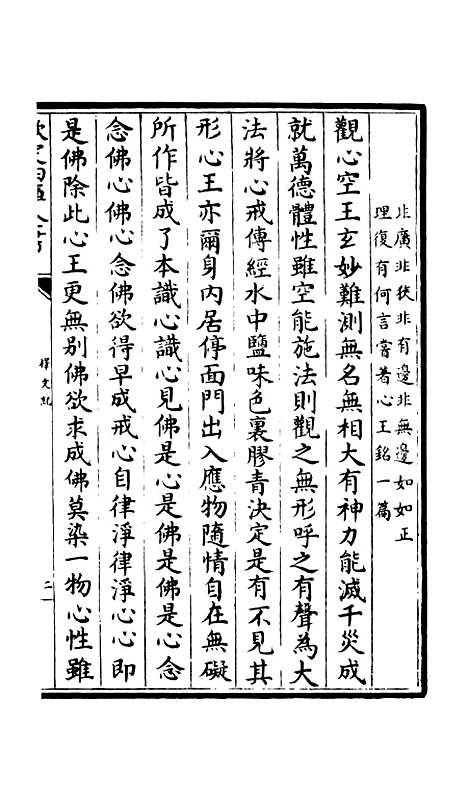 非廣非狹非有邊非無邊如如正
理復有何言嘗著心王銘一篇
觀心空王玄妙難測無名無相大有神力能滅千災成
就萬德體性雖空能施法則觀之無形呼之有聲為大
法將心戒傳經水中鹽味色裏膠青決定是有不見其
形心王亦爾身內居停面門出入應物隨情自在無礙
所作皆成了本識心識心見佛是心是佛是佛是心念
念佛心佛心念佛欲得早成戒心自律淨律淨心心即
是佛除此心王更無別佛欲求成佛莫染一物心性雖
釋文紀